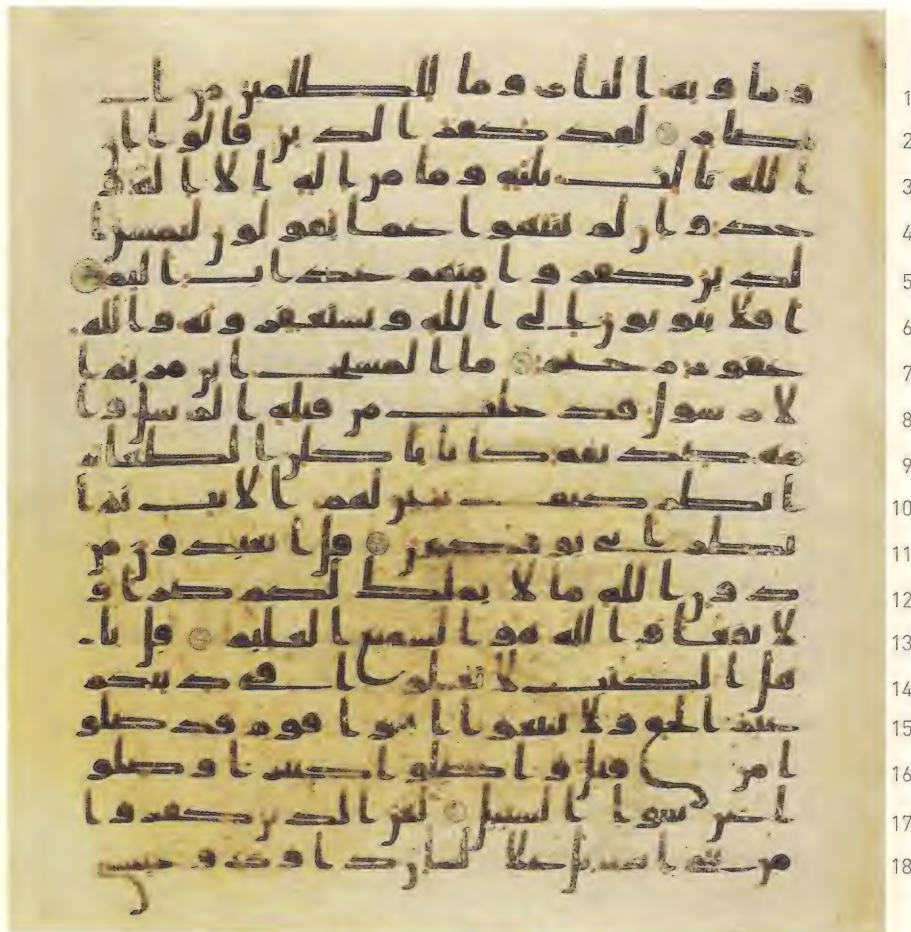 وماويه النار وما للظلمين من ا 1
نصار لقد كفر الذين قالوا ان 2
الله ثالث ثلثه وما من اله الا اله و 3
حد وان لم ينتهوا عما يقولون ليمسن ا 4
لذين كفروا منهم عذاب اليم 5
افلا يتوبون الى الله ويستغفرونه والله 6
غفور رحيم ما المسيح ابن مريم ا 7
لا رسول قد خلت من قبله الرسل وا 8
مه صديقه كانا ياكلن الطعام 9
انظر كيف نبين لهم الايت ثم ا 10
نظر انى يوفكون قل اتعبدون من 11
دون الله ما لا يملك لكم ضرا و 12
لا نفعا والله هو السميع العليم قل يا 13
هل الكتب لا تغلوا في دينكم 14
غير الحق ولا تتبعوا اهوا قوم قد ضلو 15
ا من قبل واضلوا كثيرا وضلو 16
ا عن سوا السبيل لعن الذين كفروا 17
من بني اسريل على لسان داود وعيسى 18